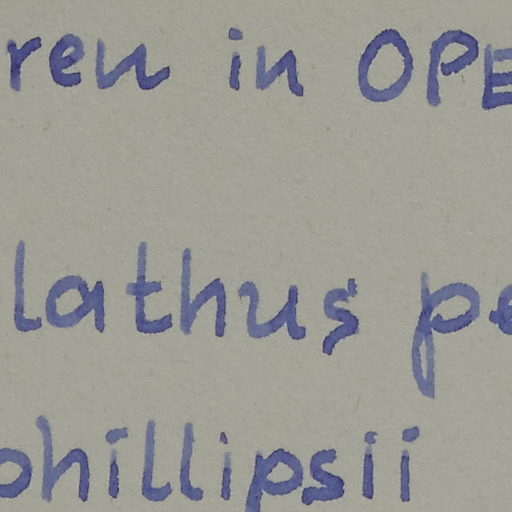 ren in OPE
lathus pe
phillipsii